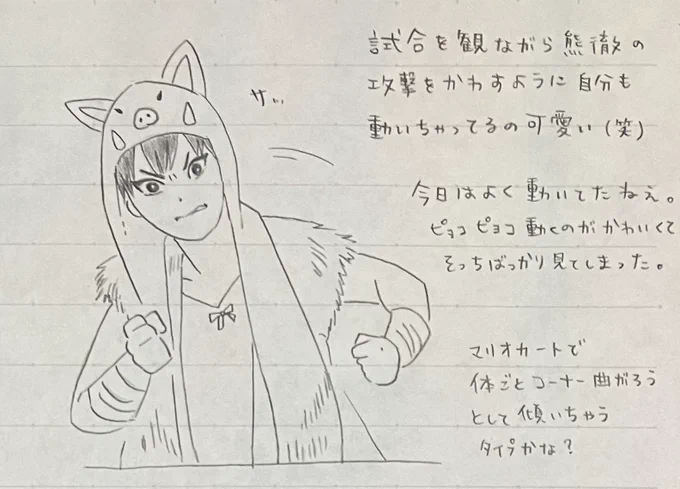 サッ
試合を観ながら熊徹の
攻撃をかわすように自分も
動いちゃってるの可愛い(笑)
今日はよく動いてたねぇ。
ピョコピョコ動くのがかわいくて
そっちばっかり見てしまった。
マリオカートで
体ごとコーナー曲がろう
として傾いちゃう
タイプかな?